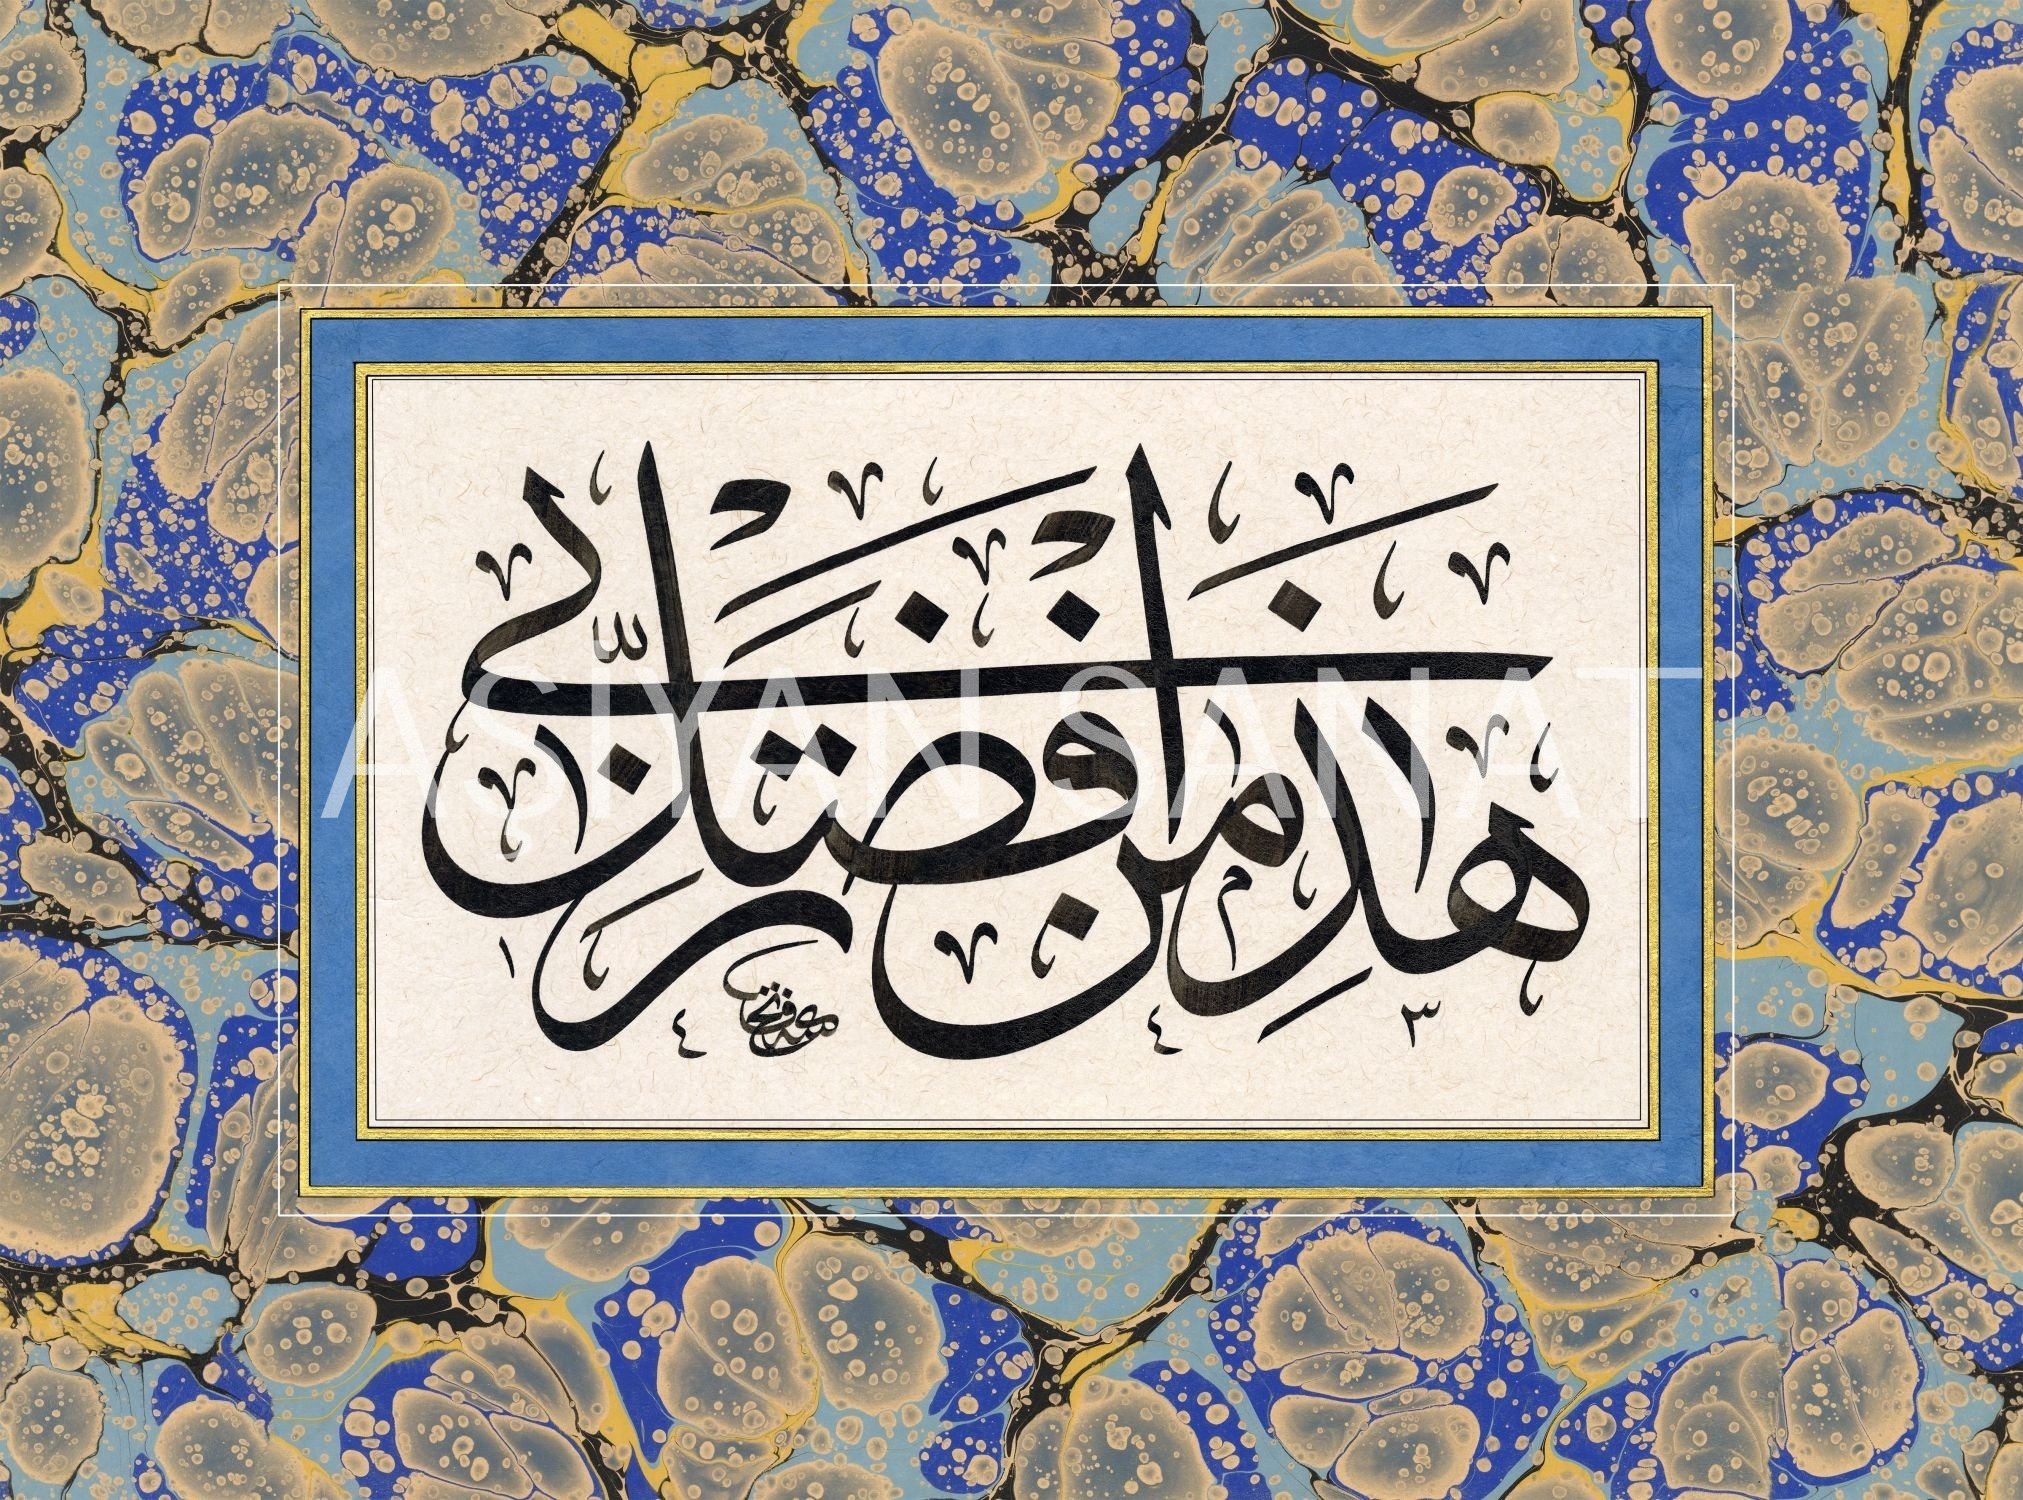 هٰذَا مِنْ فَضْلِ رَبِّي
ASIYAN SANAT